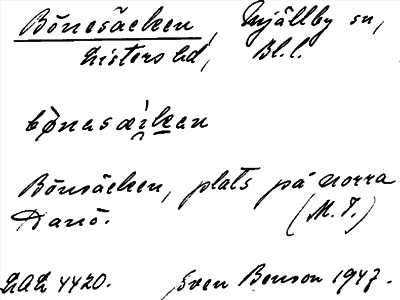 Bönesäcken, Mjällby sn,
Listers hd, Bl. l.
bønasæ̀i̯kan
Bönsäcken, plats på norra
Hanö. (M. T.)
LAL 4420. Sven Benson 1947.